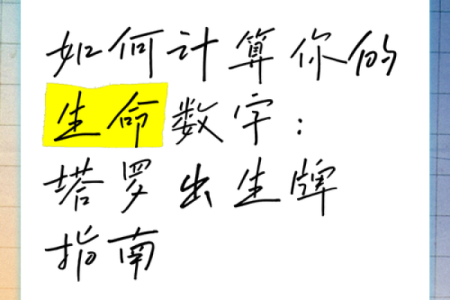 如何计算你的
生命数字：
塔罗出生牌
指南